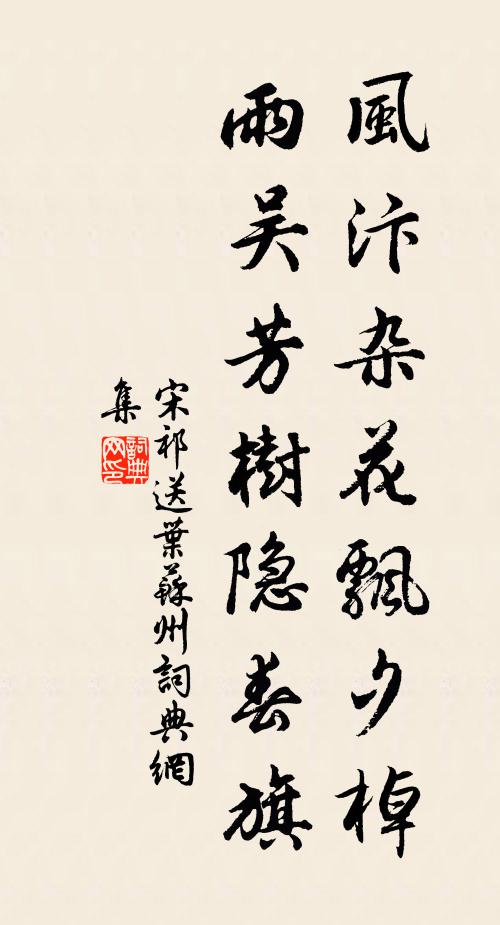 風汴杂花飄夕棹
雨吴芳樹隐春旗
宋祁送葉蘇州詞典網
集
詞典網印